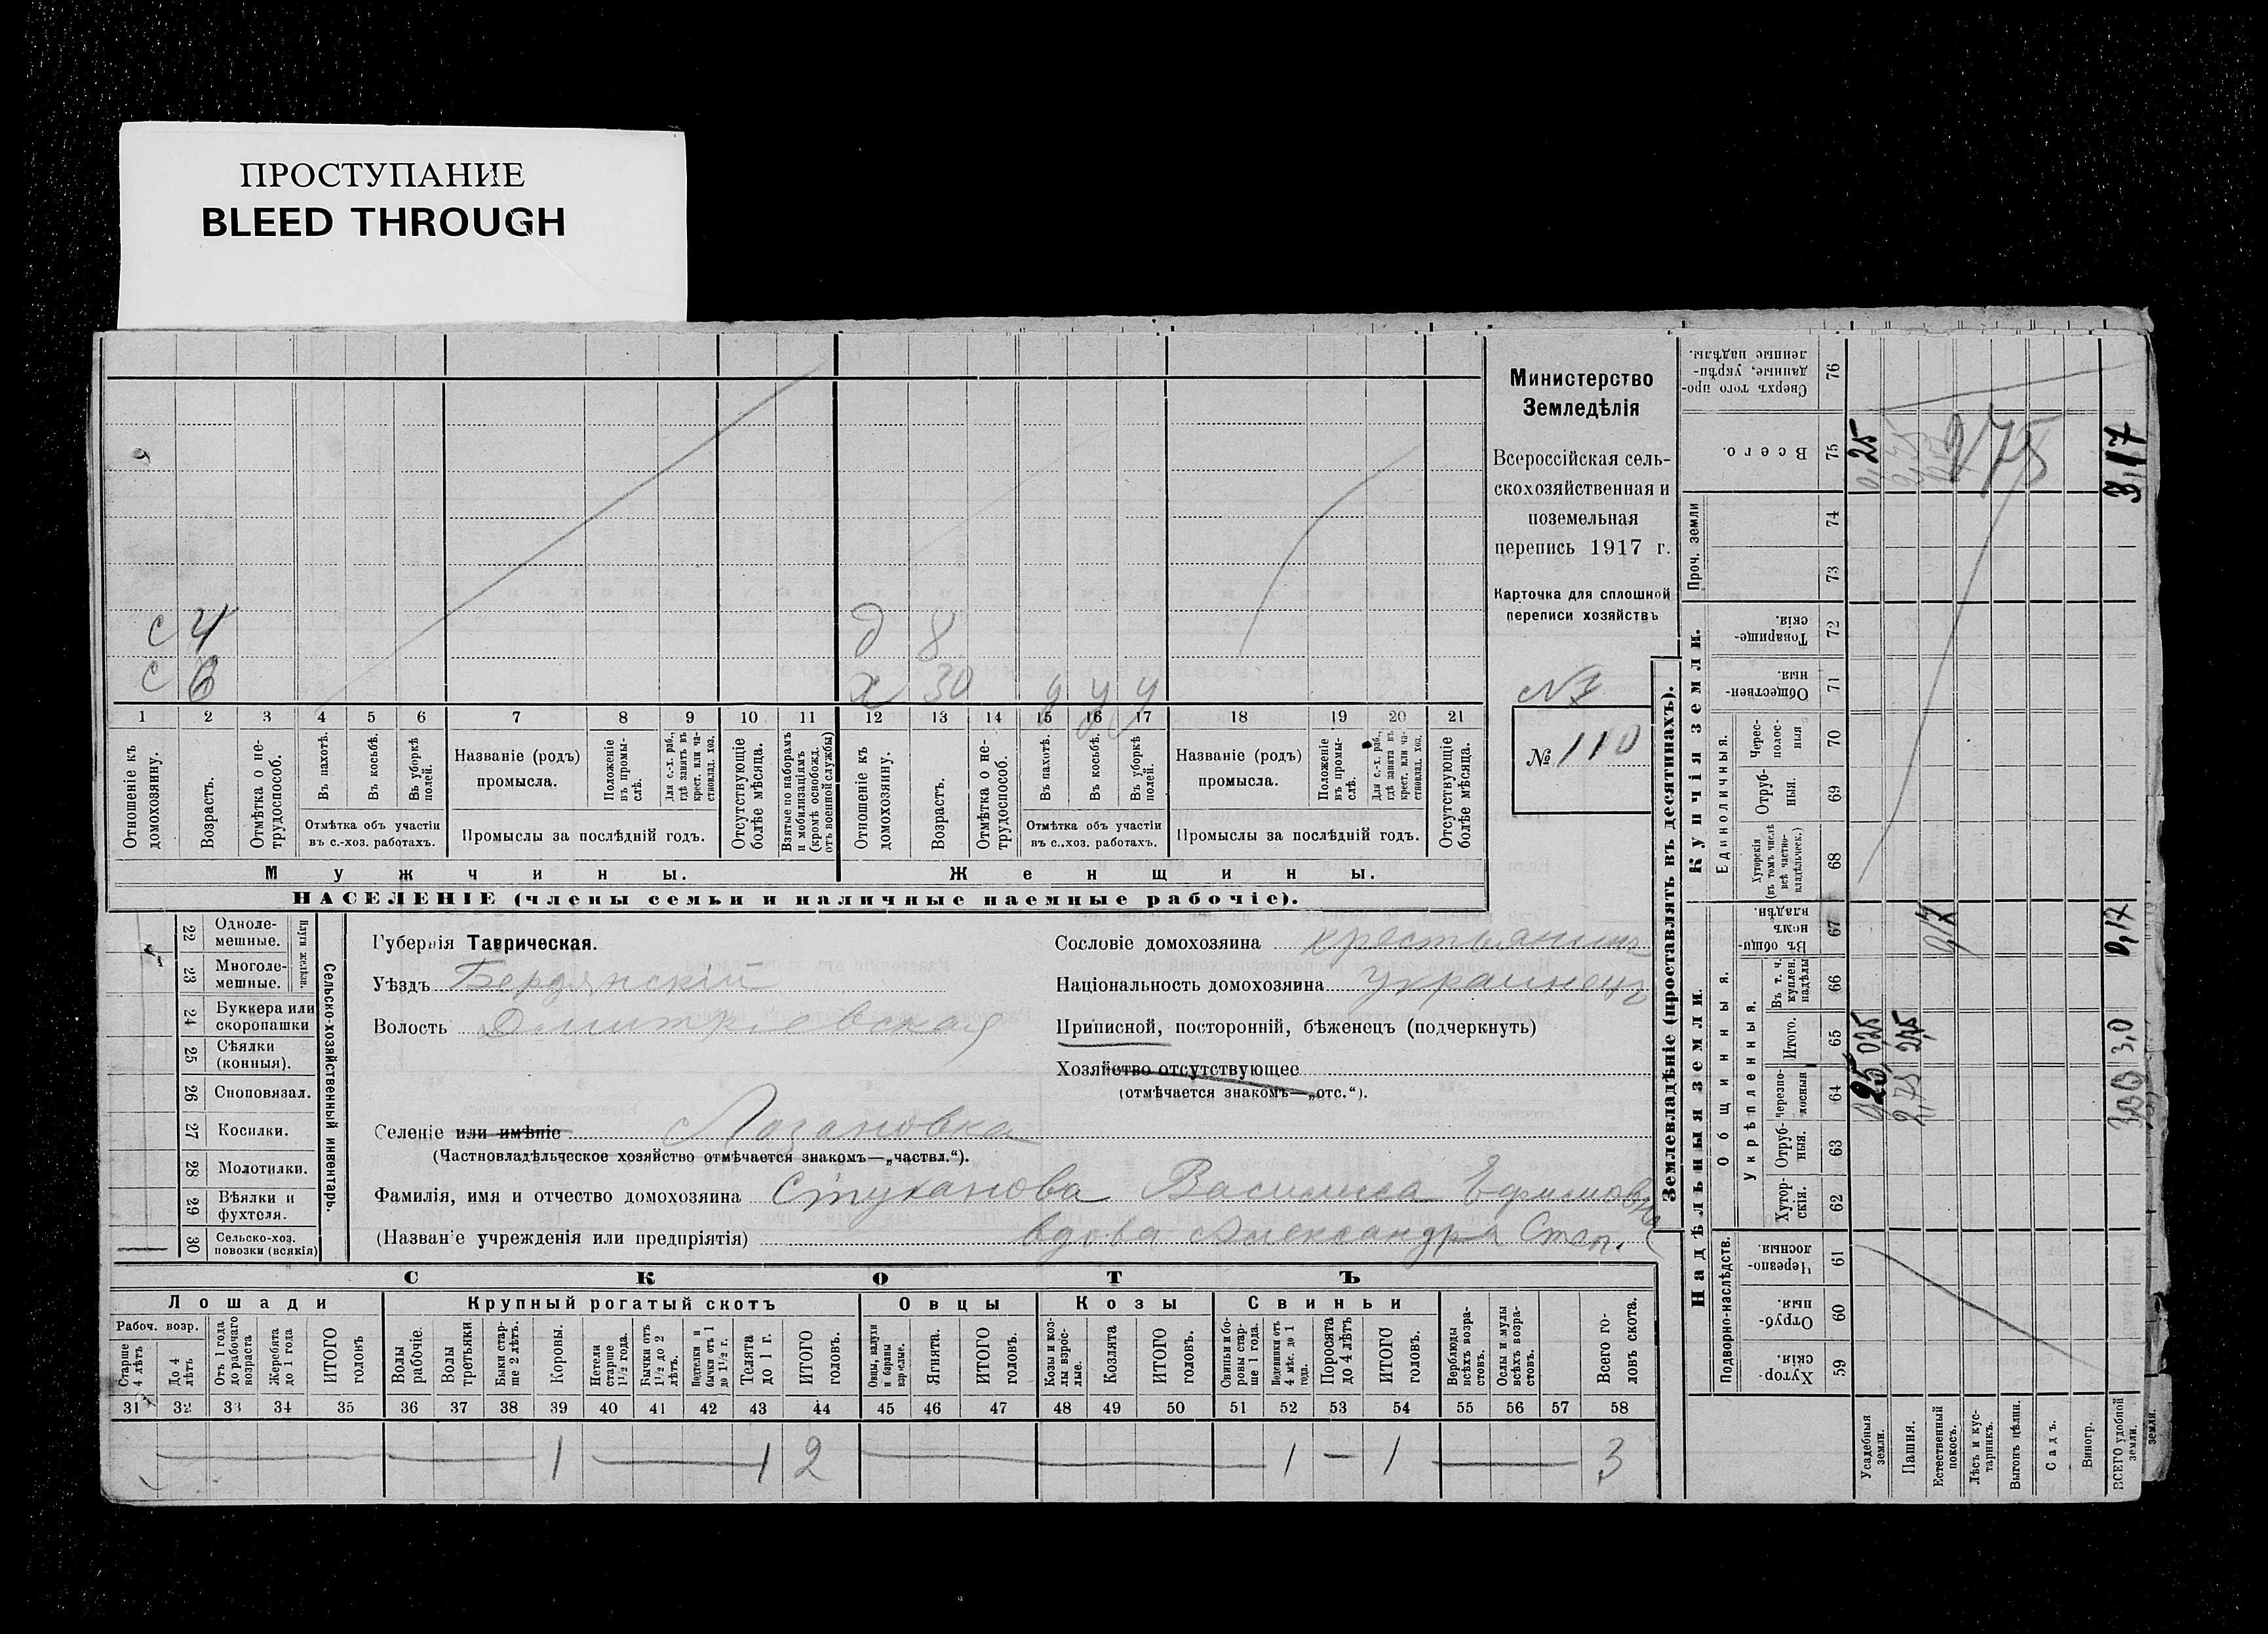 ПРОСТУПАНИЕ
BLEED THROUGH
с 4
с 6
д 8
х 30 у у у
1 2 3 4 5 6 7 8 9 10 11 12 13 14 15 16 17 18 19 20 21
Отношеніе къ домохозяину.
Возрастъ.
Отмѣтка о не-трудоспособ.
Въ пахотѣ.
Въ косьбѣ.
Въ уборкѣ полей.
Отмѣтка объ участіи
въ с.-хоз. работахъ.
Названіе (родъ)
промысла.
Положеніе въ промы-слѣ.
Для с.-х. раб., гдѣ занятъ въ крест. или ча-стновлад. хоз.
Промыслы за послѣдній годъ.
Отсутствующіе болѣе мѣсяца.
Взятые по наборамъ и мобилизаціямъ (кромѣ освобожд. отъ военной службы)
Отношеніе къ домохозяину.
Возрастъ.
Отмѣтка о не-трудоспособ.
Въ пахотѣ.
Въ косьбѣ.
Въ уборкѣ полей.
Отмѣтка объ участіи
въ с..хоз. работахъ.
Названіе (родъ)
промысла.
Положеніе въ промы-слѣ.
Для с.-х. раб., гдѣ занята въ крест. или ча-стновлад. хоз.
Промыслы за послѣдній годъ.
Отсутствующіе болѣе мѣсяца.
Мужчины.
Женщины.
НАСЕЛЕНІЕ (члены семьи и наличные наемные рабочіе).
Министерство
Земледѣлія
Всероссійская сель-
скохозяйственная и
поземельная
перепись 1917 г.
Карточка для сплошной
переписи хозяйствъ
№ 110
Сельско-хозяйственный инвентарь.
Плуги желѣзн.
22 Одноле-мешные.
23 Многоле-мешные.
24 Буккера или скоропашки
25 Сѣялки (конныя).
26 Сноповязал.
27 Косилки.
28 Молотилки.
29 Вѣялки и фухтеля.
30 Сельско-хоз. повозки (всякія)
Губернія Таврическая.
Уѣздъ Бердянскій
Волость Дмитріевская
Селеніе или имѣніе Лозановка
(Частновладѣльческое хозяйство отмѣчается знакомъ—„частвл.“).
Фамилія, имя и отчество домохозяина Стуканова Василиса Ефимовна
(Названіе учрежденія или предпріятія) вдова Александра Степ.
Сословіе домохозяина крестьянинъ
Національность домохозяина украинецъ
Приписной, посторонній, бѣженецъ (подчеркнуть)
Хозяйство отсутствующее
(отмѣчается знакомъ—„отс.“).
СКОТЪ
Лошади
Рабоч. возр.
Старше 4 лѣтъ
До 4 лѣтъ
Отъ 1 года до рабочаго возраста
Жеребята до 1 года
ИТОГО головъ
Крупный рогатый скотъ
Волы рабочіе.
Волы третьяки.
Быки стар-ше 2 лѣтъ.
Коровы.
Нетели старше 1½ года.
Бычки отъ 1½ до 2 лѣтъ.
Подтелки и бычки отъ 1 до 1½ г.
Телята до 1 г.
ИТОГО головъ.
Овцы
Овцы, валухи и бараны взрослые.
Ягнята.
ИТОГО головъ.
Козы
Козы и коз-лы взрос-лые.
Козлята
ИТОГО головъ.
Свиньи
Свиньи и бо-ровы стар-ше 1 года.
Подсвинки отъ 4 мѣс. до 1 года.
Поросята до 4 лѣтъ
ИТОГО головъ.
Верблюды всѣхъ возра-стовъ.
Ослы и мулы всѣхъ возра-стовъ.
Всего го-ловъ скота.
31 32 33 34 35 36 37 38 39 40 41 42 43 44 45 46 47 48 49 50 51 52 53 54 55 56 57 58
1 1 2 1 — 1 3
Землевладѣніе (проставлять въ десятинахъ).
Надѣльныя земли.
Купчія земли.
Подворно-наслѣдств.
Общинныя.
Укрѣпленныя.
Единоличныя.
Проч. земли
Сверхъ того про-данные, укрѣп-ленные надѣлы. 76
Всего. 75
74
73
Товарище-скія. 72
Обществен-ныя 71
Черес-полос-ныя 70
Отруб-ныя. 69
Хуторскія (въ томъ числѣ всѣ частно-владѣльческ.) 68
Въ общи-номъ владѣн. 67
Въ т. ч. куплен. надѣлы 66
Итого. 65
Черезпо-лосныя 64
Отруб-ныя. 63
Хутор-скія. 62
Черезпо-лосныя 61
Отруб-ныя. 60
Хутор-скія. 59
Усадебныя земли.
Пашня.
Естественный покосъ.
Лѣсъ и кус-тарникъ.
Выгонъ цѣлин.
Садъ.
Виногр.
ВСЕГО удобной земли.
0,25
2,75
3,17
0,17
3,0